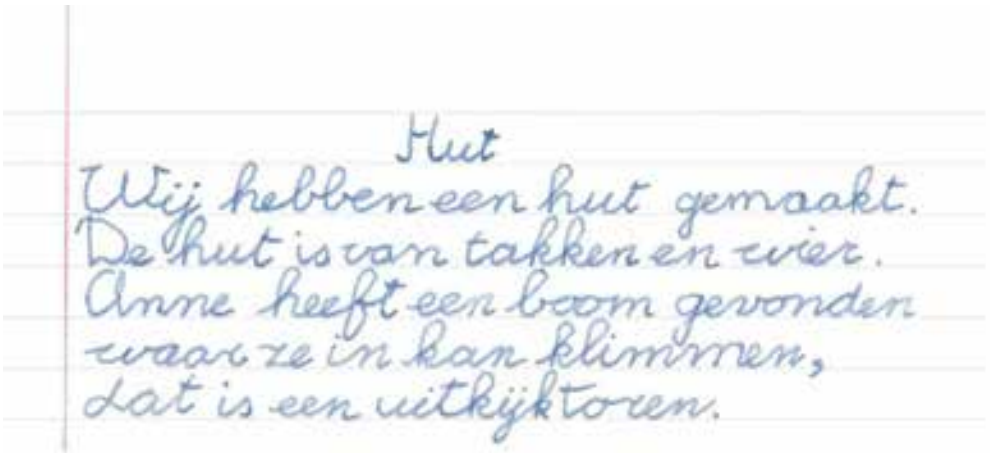 Hut
Wij hebben een hut gemaakt.
De hut is van takken en wier.
Anne heeft een boom gevonden
waar ze in kan klimmen,
dat is een uitkijktoren.